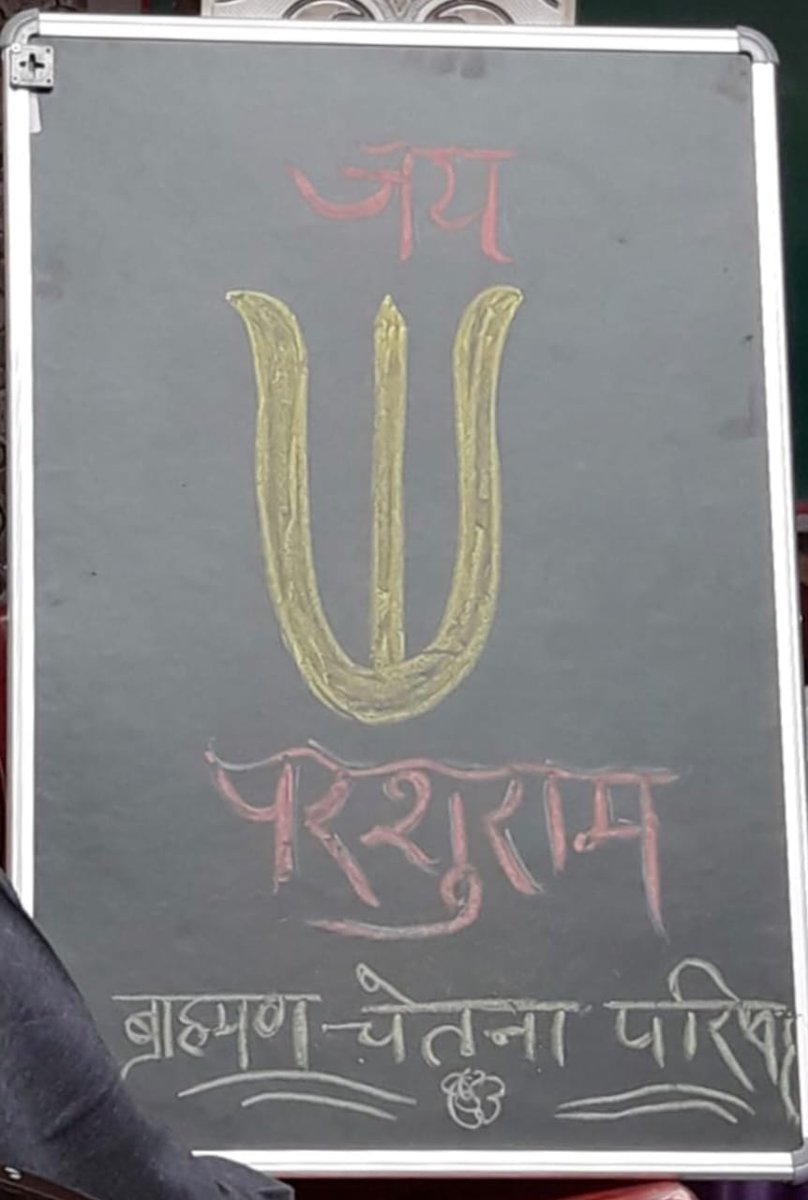 जय
परशुराम
ब्राह्मण चेतना परिषद